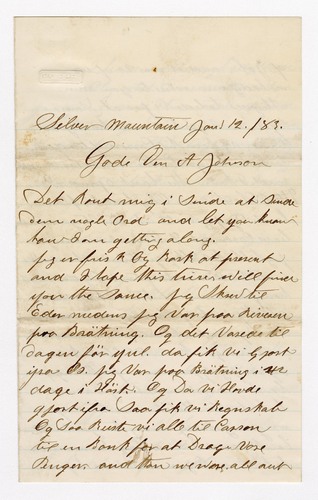 Silver Mountain Jan 12. /83.
Gode Ven A Johnson
Det kout mig i Sinde at Sende
dem nogle Ord and let you know
how I am getting along.
Jeg er frisk Og Rask at present
and I hope this lines will find
you the Same. Jeg Skrev til
Eder medens Jeg Var paa Riveren
paa Brätning. Og det Varede til
dagen för Jul. da fik vi gjort
ifra Os. Jeg Var paa Brätning i 42
dage i Höst. Og Da vi Havde
gjort ifra Saa fik vi Regnskab
Og Saa Reiste vi alle til Carson
til en Bank for at Drage Vore
Penger. and than we were all out